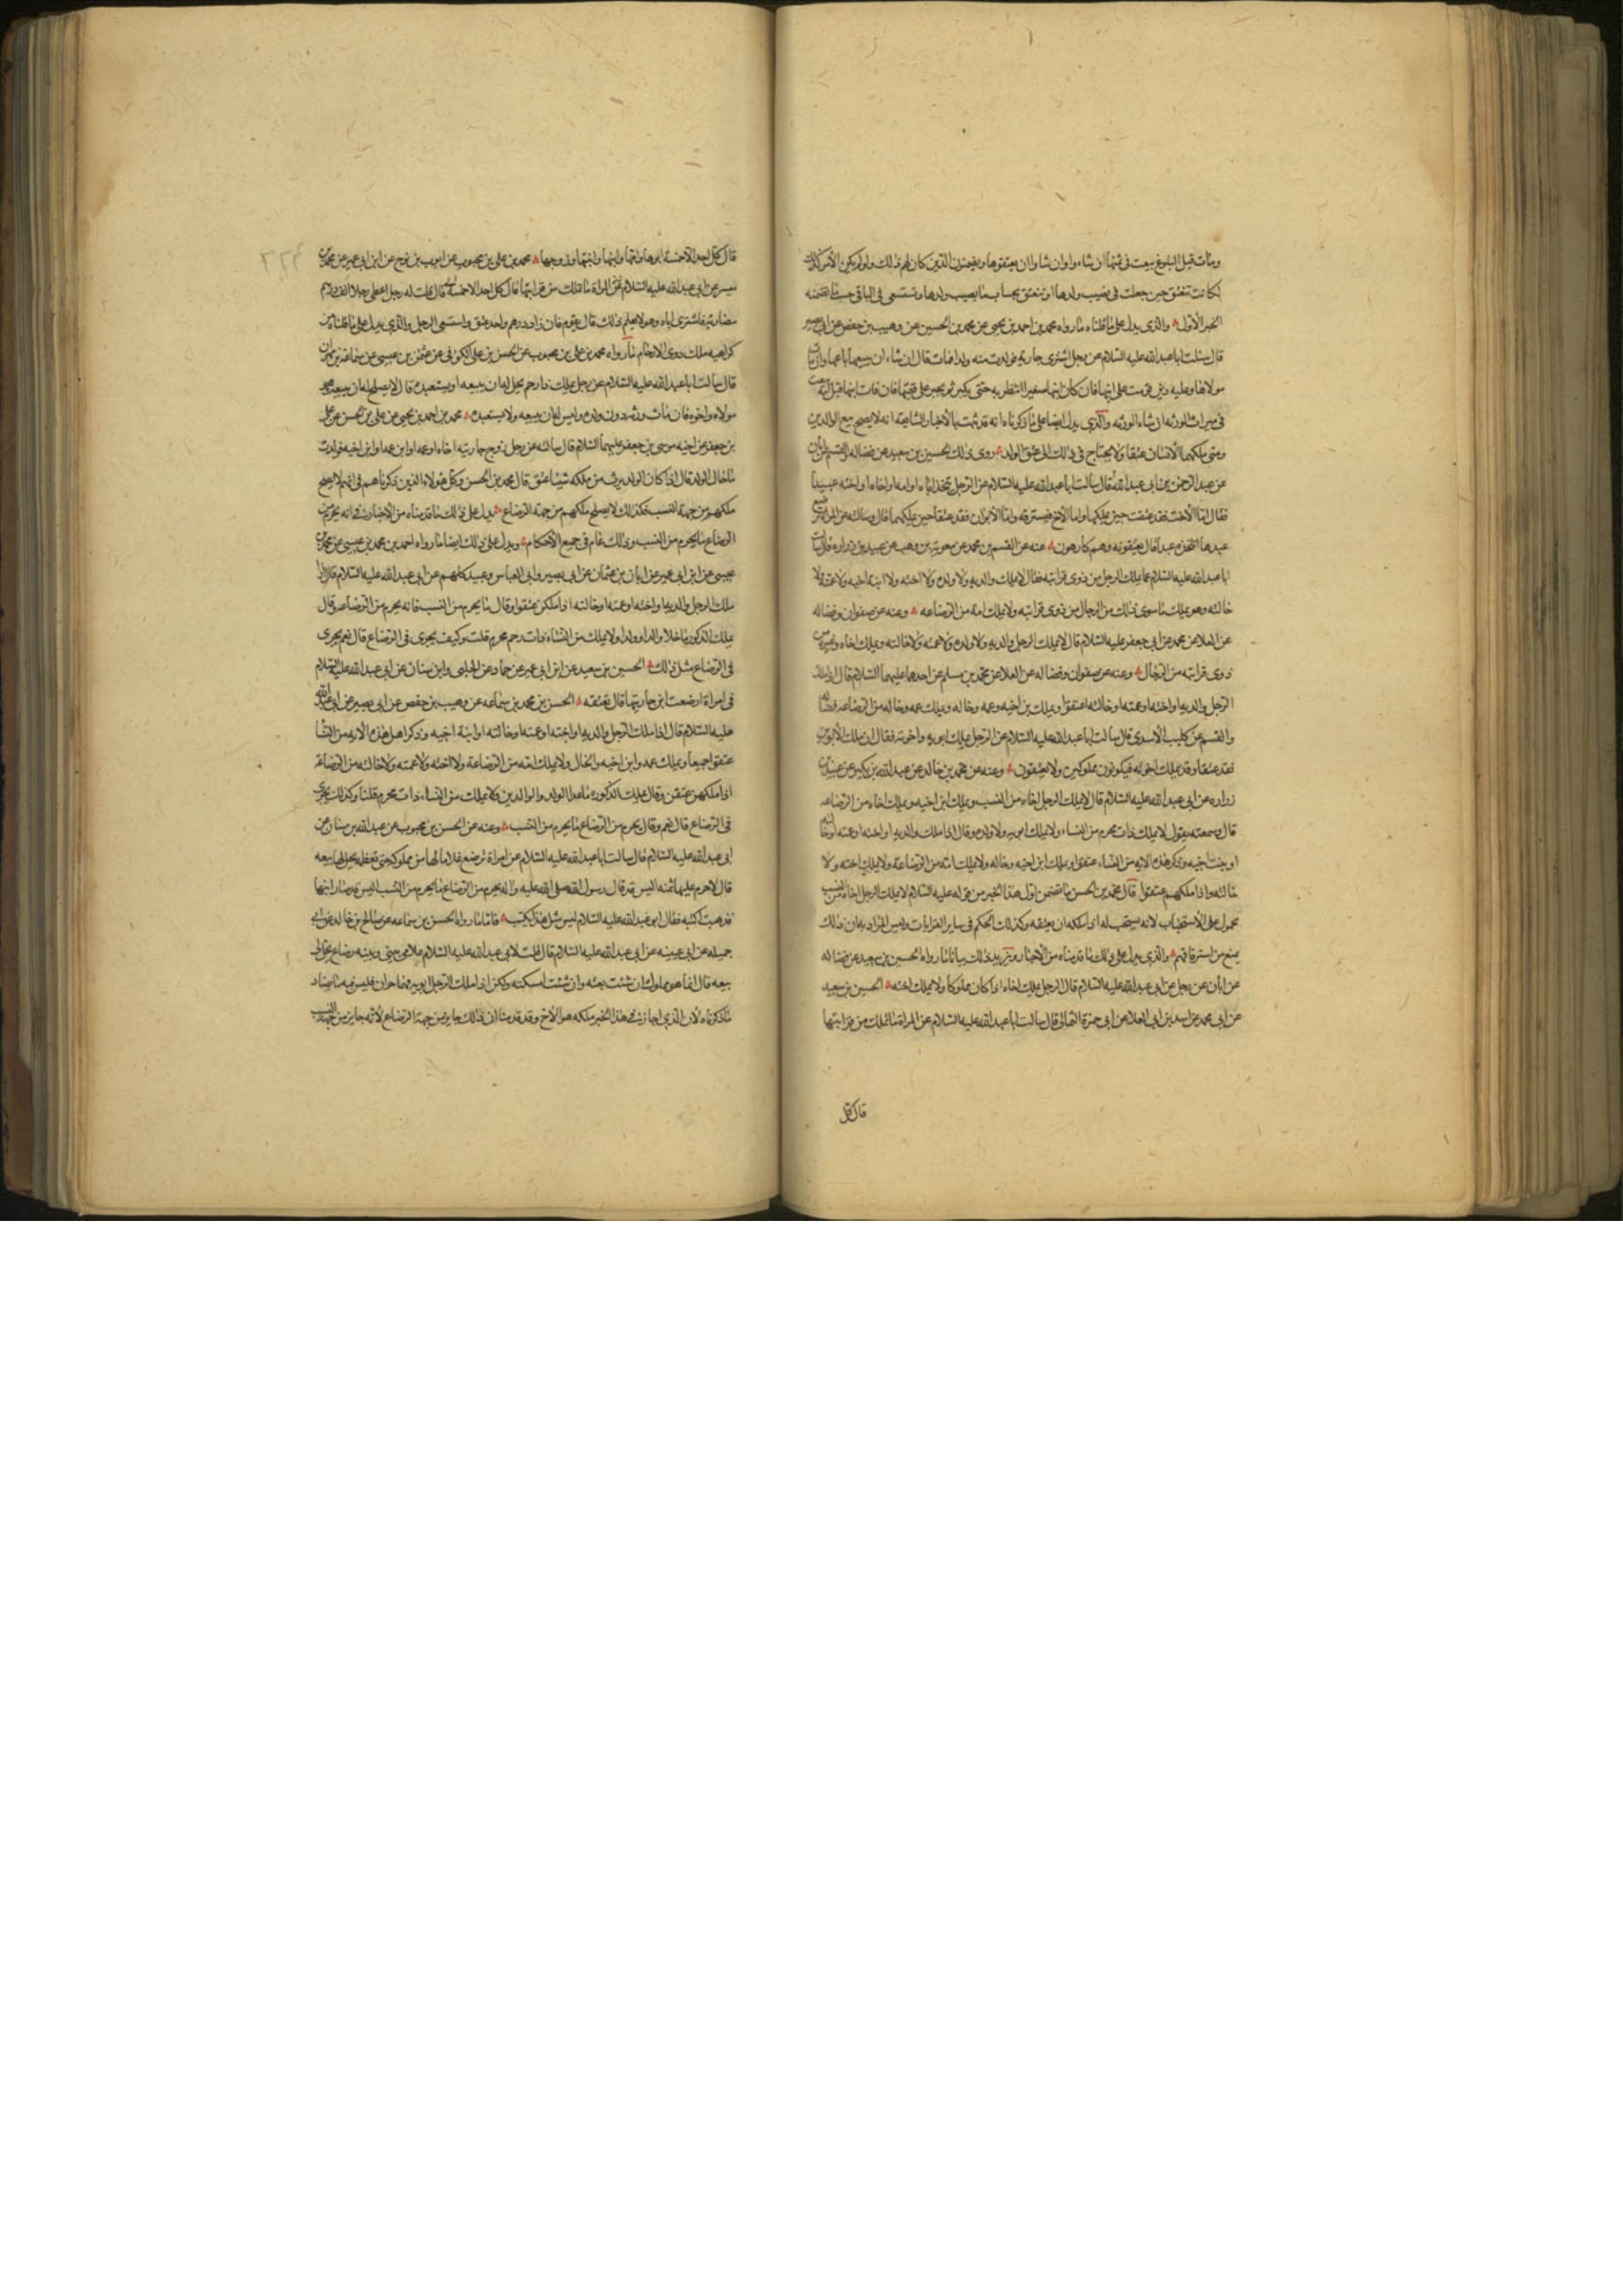 ومات قبل البلوغ بيعت في ثمنها ان شاءوا وان شاوا ان يعتقوها ويضمنون الدين كان لهم ذلك ولو لم يكن الأمر كذلك
لكانت تنعتق حين جعلت في نصيب ولدها او تنعتق بحساب ما يصيب ولدها وتستسعى في الباقي حسب ما تضمنه
الخبر الأول والذي يدل على ما قلناه ما رواه محمد بن احمد بن يحيى عن محمد بن الحسين عن وهيب بن حفص عن ابي بصير
قال سئلت ابا عبد الله عليه السلام عن رجل اشترى جارية فولدت منه ولدا فمات قال ان شاء ان يبيعها باعها وان مات
مولاها وعليه دين قومت على ابنها فان كان ابنها صغيرا انتظر به حتى يكبر ثم يجبر على قيمتها فان مات ابنها قبل امه بيعت
في ميراث الورثه ان شاء الورثه والذي يدل ايضا على ما ذكرناه انه قد ثبت بالأخبار الشايعه انه لا يصح بيع الوالدين
ومتى ملكهما الأنسان عتقا ولا يحتاج في ذلك الى عتق الولد روى ذلك الحسين بن سعيد عن فضاله والقسم عن ابان
عن عبد الرحمن بن ابي عبد الله قال سالت ابا عبد الله عليه السلام عن الرجل يتخذ اباه او امه او اخاه او اخته عبيدا
فقال اما الأخت فقد عتقت حين يملكها واما الأخ فيسترقه واما الأبوان فقد عتقا حين يملكهما قال وسالته عن المراة ترضع
عبدها اتتخذه عبدا قال يعتقونه وهم كارهون عنه عن القسم بن محمد عن معوية بن وهب عن عبيد بن زراره قال سالت
ابا عبد الله عليه السلام عما يملك الرجل من ذوي قرابته فقال لا يملك والديه ولا ولده ولا اخته ولا ابنة اخيه ولا عمته ولا
خالته وهو يملك ما سوى ذلك من الرجال من ذوي قرابته ولا يملك امه من الرضاعه وعنه عن صفوان وفضاله
عن العلا عن محمد عن ابي جعفر عليه السلام قال لا يملك الرجل والديه ولا ولده ولا عمته ولا خالته ويملك اخاه وغيره من
ذوي قرابته من الرجال وعنه عن صفوان وفضاله عن العلا عن محمد بن مسلم عن احدهما عليهما السلام قال اذا ملك
الرجل والديه او اخته او عمته او خالته اعتقوا ويملك بن اخيه وعمه وخاله ويملك عمه وخاله من الرضاعه فضاله
والقسم عن كليب الأسدي قال سالت ابا عبد الله عليه السلام عن الرجل يملك ابويه واخوته فقال ان ملك الأبوين
فقد عتقا وقد يملك اخوته فيكونون مملوكين ولا يعتقون وعنه عن محمد بن خالد عن عبد الله بن بكير عن عبيد بن
زراره عن ابي عبد الله عليه السلام قال لا يملك الرجل اخاه من النسب ويملك ابن اخيه ويملك اخاه من الرضاعه
قال وسمعته يقول لا يملك ذات محرم من النساء ولا يملك ابويه ولا ولده وقال اذا ملك والديه او اخته او عمته او خالته
او بنت اخيه وذكر هذه الايه من النساء عتقوا ويملك ابن اخيه وخاله ولا يملك امه من الرضاعة ولا يملك اخته ولا
خالته واذا ملكهم عتقوا قال محمد بن الحسن ما تضمن اول هذا الخبر من قوله عليه السلام لا يملك الرجل اخاه من النسب
محمول على الأستحباب لانه يستحب له اذا ملكه ان يعتقه وكذلك الحكم في ساير القرابات وليس المراد به ان ذلك
يمنع من استرقاقهم والذي يدل على ذلك ما قدمناه من الأخبار ويزيد ذلك بيانا ما رواه الحسين بن سعيد عن فضاله
عن ابان عن رجل عن ابي عبد الله عليه السلام قال الرجل يملك اخاه اذا كان مملوكا ولا يملك اخته الحسين بن سعيد
عن ابي محمد عن اسد بن ابي العلا عن ابي حمزة الثمالي قال سالت ابا عبد الله عليه السلام عن المراة ما تملك من قرابتها
قال كل
قال كل احد الا خمسة ابوها وامها وابنها وابنتها وزوجها محمد بن علي بن محبوب عن ايوب بن نوح عن ابن ابي عمير عن محمد بن
ميسر عن ابي عبد الله عليه السلام عن المراة ما تملك من قرابتها قال كل احد الا خمسة قال قلت له رجل اعطى رجلا الف درهم
مضاربة فاشترى اباه وهو لا يعلم ذلك قال يقوم فان زاد درهم واحد عتق واستسعى الرجل والذي يدل على ما قلناه من
كراهيه ملك ذوى الارحام ما رواه محمد بن علي بن محبوب عن الحسن بن علي الكوفي عن عثمن بن عيسى عن سماعة بن مهران
قال سالت ابا عبد الله عليه السلام عن رجل يملك ذا رحم يحل له ان يبيعه او يستعبده قال لا يصلح له ان يبيعه وهو
مولاه واخوه فان مات ورثه دون ولده وليس له ان يبيعه ولا يستعبده محمد بن احمد بن يحيى عن علي بن الحسن عن علي
بن جعفر عن اخيه موسى بن جعفر عليهما السلام قال سالته عن رجل زوج جاريته اخاه او عمه او ابن عمه او ابن اخيه فولدت
ما حال الولد قال اذا كان الولد يرث من ملكه شيئا عتق قال محمد بن الحسن وكل هولاء الذين ذكرناهم في انهم لا يصح
ملكهم من جهة النسب فكذلك لا يصلح ملكهم من جهة الرضاع يدل على ذلك ما قدمناه من الاخبار في انه يحرم من
الرضاع ما يحرم من النسب وذلك عام في جميع الأحكام ويدل على ذلك ايضا ما رواه احمد بن محمد بن عيسى عن محمد بن
عيسى عن ابن ابي عمير عن ابان بن عثمان عن ابي بصير وابي العباس وعبيد كلهم عن ابي عبد الله عليه السلام قال اذا
ملك الرجل والديه او اخته او عمته او خالته اذا ملكن عتقوا وقال ما يحرم من النسب فانه يحرم من الرضاعه وقال
يملك الذكور ما خلا والدا وولدا ولا يملك من النساء ذات رحم محرم قلت وكيف يجرى في الرضاع قال نعم يجرى
في الرضاع مثل ذلك الحسين بن سعيد عن ابن ابي عمير عن حماد عن الحلبي وابن سنان عن ابي عبد الله عليه السلام
في امراة ارضعت ابن جاريتها قال تعتقه الحسن بن محمد بن سماعه عن وهيب بن حفص عن ابي بصير عن ابي عبد الله
عليه السلام قال اذا ملك الرجل والديه او اخته او عمته او خالته او ابنة اخيه وذكر اهل هذه الايه من النسا
عتقوا جميعا ويملك عمه وابن اخيه والخال ولا يملك امه من الرضاعة ولا اخته ولا عمته ولا خالته من الرضاعة
اذا ملكهن عتقن وقال يملك الذكوره ما عدا الولد والوالدين ولا يملك من النساء ذات محرم قلنا وكذلك يجرى
في الرضاع قال نعم وقال يحرم من الرضاع ما يحرم من النسب وعنه عن الحسن بن محبوب عن عبد الله بن سنان عن
ابي عبد الله عليه السلام قال سالت ابا عبد الله عليه السلام عن امراة ترضع غلاما لها من مملوكه حتى تفطمه يحل لها بيعه
قال لا حرم عليها ثمنه اليس قد قال رسول الله صلى الله عليه واله يحرم من الرضاع ما يحرم من النسب اليس قد صار ابنها
فذهبت اكتبه فقال ابو عبد الله عليه السلام ليس مثل هذا يكتب فاما ما رواه الحسن بن سماعه عن صالح بن خالد عن ابي
جميله عن ابي عيينه عن ابي عبد الله عليه السلام قال قلت لابي عبد الله عليه السلام غلامي بيني وبينه رضاع يحل لي
بيعه قال انما هو مملوك ان شئت بعته وان شئت امسكته ولكن اذا ملك الرجل ابويه فهما حران فليس فيه ما يضاد
ما ذكرناه لان الذي اجاز في هذا الخبر ملكه هو الأخ وقد قدمنا ان ذلك جايز من جهة الرضاع لأنه جايز من جهة النسب